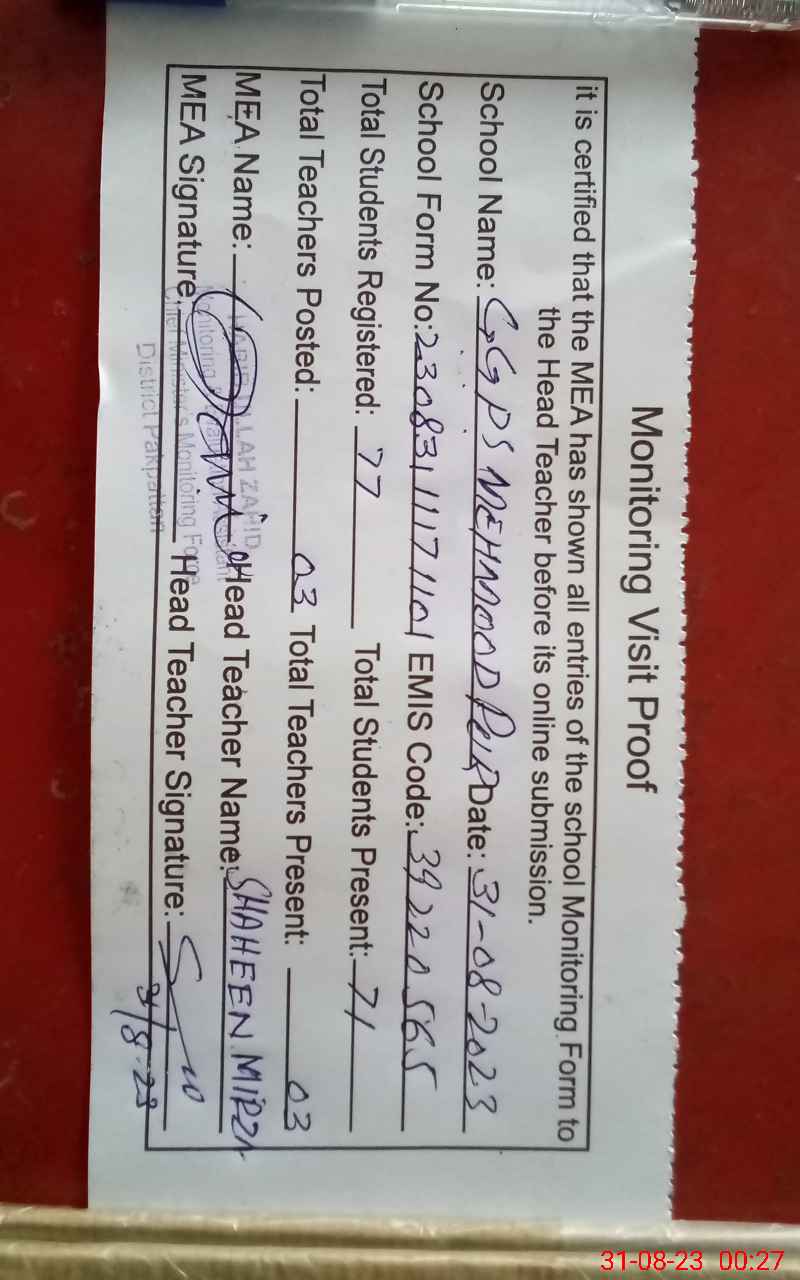 Monitoring Visit Proof
it is certified that the MEA has shown all entries of the school Monitoring Form to
the Head Teacher before its online submission.
School Name: GGPS MEHMOOD PUR Date: 31-08-2023
School Form No: 2308311171101 EMIS Code: 39220565
Total Students Registered: 77 Total Students Present: 71
Total Teachers Posted: 03 Total Teachers Present: 03
MEA Name: Head Teacher Name: SHAHEEN MIRZA
MEA Signature: Head Teacher Signature:
31/8-23
LLAH ZAHID
Monitoring
Chief Minister's Monitoring Force
District Pakpattan
31-08-23 00:27